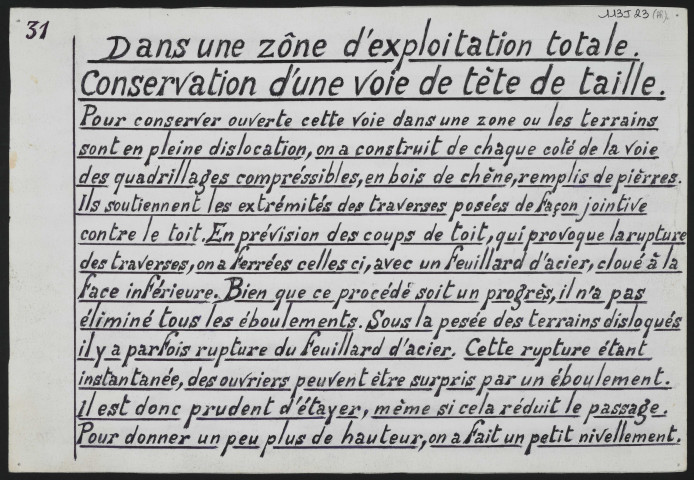 113J23(31).
31
Dans une zône d'exploitation totale.
Conservation d'une voie de tète de taille.
Pour conserver ouverte cette voie dans une zone ou les terrains
sont en pleine dislocation, on a construit de chaque coté de la voie
des quadrillages compréssibles, en bois de chêne, remplis de pièrres.
Ils soutiennent les extrémités des traverses posées de façon jointive
contre le toit. En prévision des coups de toit, qui provoque la rupture
des traverses, on a ferrées celles ci, avec un feuillard d'acier, cloué à la
face inférieure. Bien que ce procédé soit un progrès, il n'a pas
éliminé tous les éboulements. Sous la pesée des terrains disloqués
il y a parfois rupture du feuillard d'acier. Cette rupture étant
instantanée, des ouvriers peuvent être surpris par un éboulement.
il est donc prudent d'étayer, même si cela réduit le passage.
Pour donner un peu plus de hauteur, on a fait un petit nivellement.